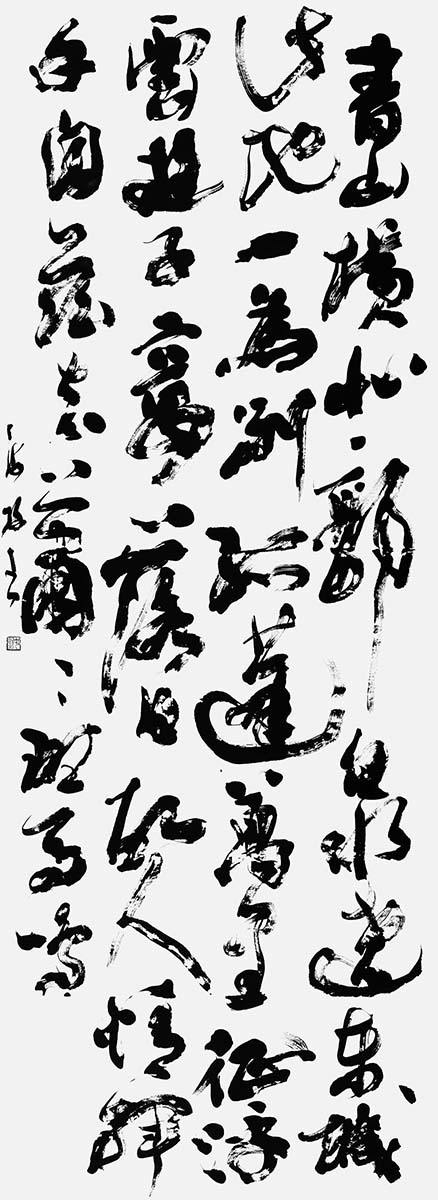 青山橫北郭白水遶東城
此地一為別孤蓬萬里征浮
雲遊子意落日故人情揮
手自茲去蕭蕭班馬鳴